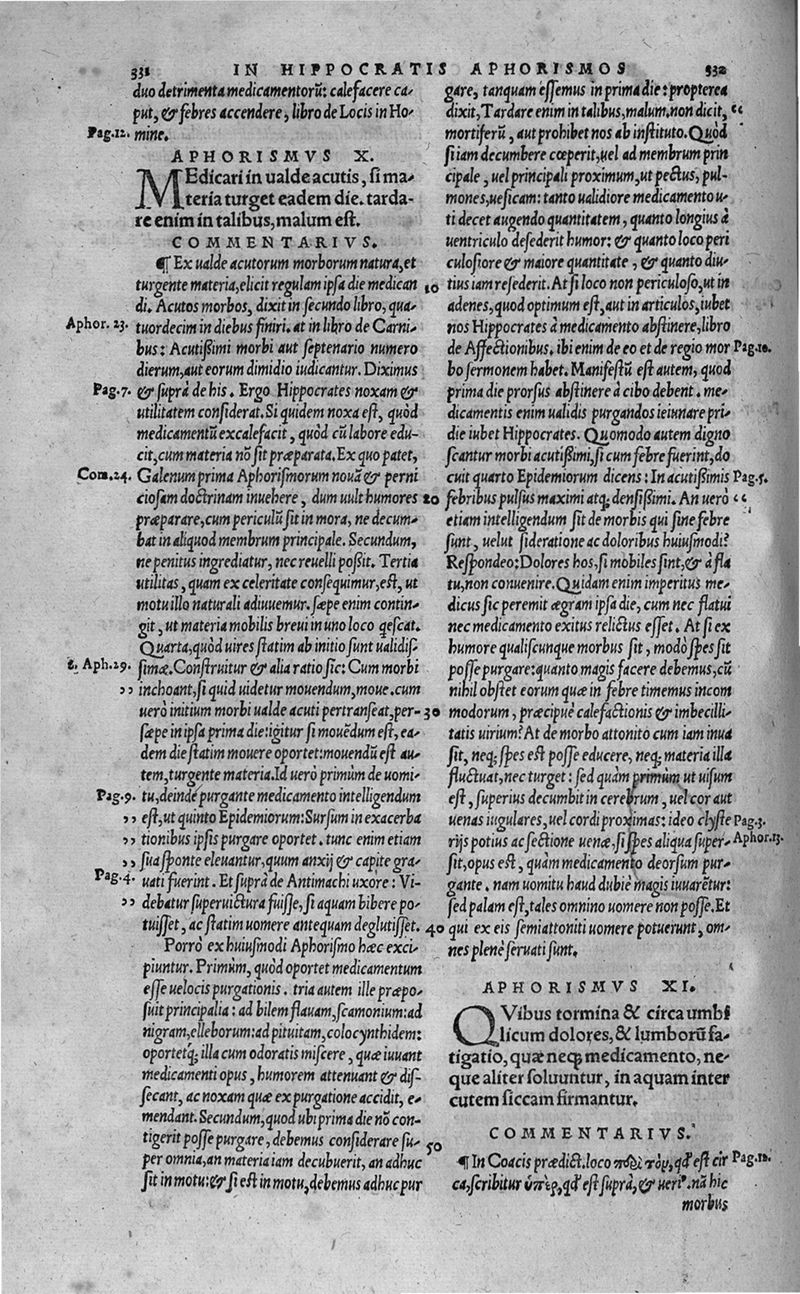 331 IN HIPPOCRATIS APHORISMOS 332
duo detrimenta medicamentorũ: calefacere ca-
put, & febres accendere, libro de Locis in Ho-
Pag.12. mine.
APHORISMVS X.
MEdicari in ualde acutis, si ma-
teria turget eadem die. tarda-
re enim in talibus, malum est.
COMMENTARIVS.
¶ Ex ualde acutorum morborum natura, et
turgente materia, elicit regulam ipsa die medican
di. Acutos morbos, dixit in secundo libro, qua-
Aphor. 23. tuordecim in diebus finiri. at in libro de Carni-
bus: Acutißimi morbi aut septenario numero
dierum, aut eorum dimidio iudicantur. Diximus
Pag.7. & suprà de his. Ergo Hippocrates noxam &
utilitatem considerat. Si quidem noxa est, quòd
medicamentũ excalefacit, quòd cũ labore edu-
cit, cum materia nõ sit præparata. Ex quo patet,
Com.24. Galenum prima Aphorismorum nouã & perni
ciosam doctrinam inuehere, dum uult humores
præparare, cum periculũ sit in mora, ne decum-
bat in aliquod membrum principale. Secundum,
ne penitus ingrediatur, nec reuelli possit. Tertia
utilitas, quam ex celeritate consequimur, est, ut
motu illo naturali adiuuemur. sæpe enim contin-
git, ut materia mobilis breui in uno loco qescat.
Quarta, quòd uires statim ab initio sunt ualidis-
2. Aph.29. simæ. Construitur & alia ratio sic: Cum morbi
,, inchoant, si quid uidetur mouendum, moue. cum
uerò initium morbi ualde acuti pertranseat, per-
sæpe in ipsa prima die: igitur si mouẽdum est, ea-
dem die statim mouere oportet: mouendũ est au-
tem, turgente materia. Id uerò primùm de uomi-
Pag.9. tu, deinde purgante medicamento intelligendum
,, est, ut quinto Epidemiorum: Sursum in exacerba
,, tionibus ipsis purgare oportet. tunc enim etiam
,, sua sponte eleuantur, quum anxij & capite gra-
Pag.4. uati fuerint. Et suprà de Antimachi uxore: Vi-
,, debatur superuictura fuisse, si aquam bibere po-
tuisset, ac statim uomere antequam deglutisset.
Porrò ex huiusmodi Aphorismo hæc exci-
piuntur. Primùm, quòd oportet medicamentum
esse uelocis purgationis. tria autem ille præpo-
suit principalia: ad bilem flauam, scamonium: ad
nigram, elleborum: ad pituitam, colocynthidem:
oportetq; illa cum odoratis miscere, quæ iuuant
medicamenti opus, humorem attenuant & dis-
secant, ac noxam quæ ex purgatione accidit, e-
mendant. Secundum, quod ubi prima die nõ con-
tigerit posse purgare, debemus considerare su-
per omnia, an materia iam decubuerit, an adhuc
sit in motu: & si est in motu, debemus adhuc pur
gare, tanquam essemus in prima die: propterea
dixit, Tardare enim in talibus, malum. non dicit, “
mortiferũ, aut prohibet nos ab instituto. Quòd
si iam decumbere cœperit, uel ad membrum prin
cipale, uel principali proximum, ut pectus, pul-
mones, uesicam: tanto ualidiore medicamento u-
ti decet augendo quantitatem, quanto longius à
uentriculo desederit humor: & quanto loco peri
culosiore & maiore quantitate, & quanto diu-
10 tius iam resederit. At si loco non periculoso, ut in
adenes, quod optimum est, aut in articulos, iubet
nos Hippocrates à medicamento abstinere, libro
de Affectionibus. ibi enim de eo et de regio mor Pag.10.
bo sermonem habet. Manifestũ est autem, quod
prima die prorsus abstinere à cibo debent. me-
dicamentis enim ualidis purgandos ieiunare pri-
die iubet Hippocrates. Quomodo autem digno
scantur morbi acutißimi, si cum febre fuerint, do
cuit quarto Epidemiorum dicens: In acutißimis Pag.5.
20 febribus pulsus maximi atq; densißimi. An uerò “
etiam intelligendum sit de morbis qui sine febre
sunt, uelut sideratione ac doloribus huiusmodi?
Respondeo: Dolores hos, si mobiles sint, & à fla
tu, non conuenire. Quidam enim imperitus me-
dicus sic peremit ægram ipsa die, cum nec flatui
nec medicamento exitus relictus esset. At si ex
humore qualiscunque morbus sit, modò spes sit
posse purgare: quanto magis facere debemus, cũ
nihil obstet eorum quæ in febre timemus incom
30 modorum, præcipuè calefactionis & imbecilli-
tatis uirium? At de morbo attonito cum iam inua
sit, neq; spes est posse educere, neq; materia illa
fluctuat, nec turget: sed quàm primùm ut uisum
est, superius decumbit in cerebrum, uel cor aut
uenas iugulares, uel cordi proximas: ideo clyste Pag.3.
rijs potius ac sectione uenæ, si spes aliqua super- Aphor.13.
sit, opus est, quàm medicamento deorsum pur-
gante. nam uomitu haud dubiè magis iuuarẽtur:
sed palam est, tales omnino uomere non posse. Et
40 qui ex eis semiattoniti uomere potuerunt, om-
nes plenè seruati sunt.
APHORISMVS XI.
QVibus tormina & circa umbi
licum dolores, & lumborũ fa-
tigatio, quæ neq; medicamento, ne-
que aliter soluuntur, in aquam inter
cutem siccam firmantur.
COMMENTARIVS.
50 ¶ In Coacis prædict. loco περὶ τὸν, qđ est cir Pag.12.
ca, scribitur ὑπὲρ, qđ est suprà, & ueri'. nã hic
morbus